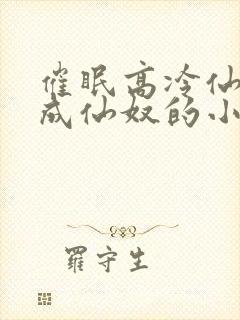 催眠高冷仙
成仙奴的小
羅守生